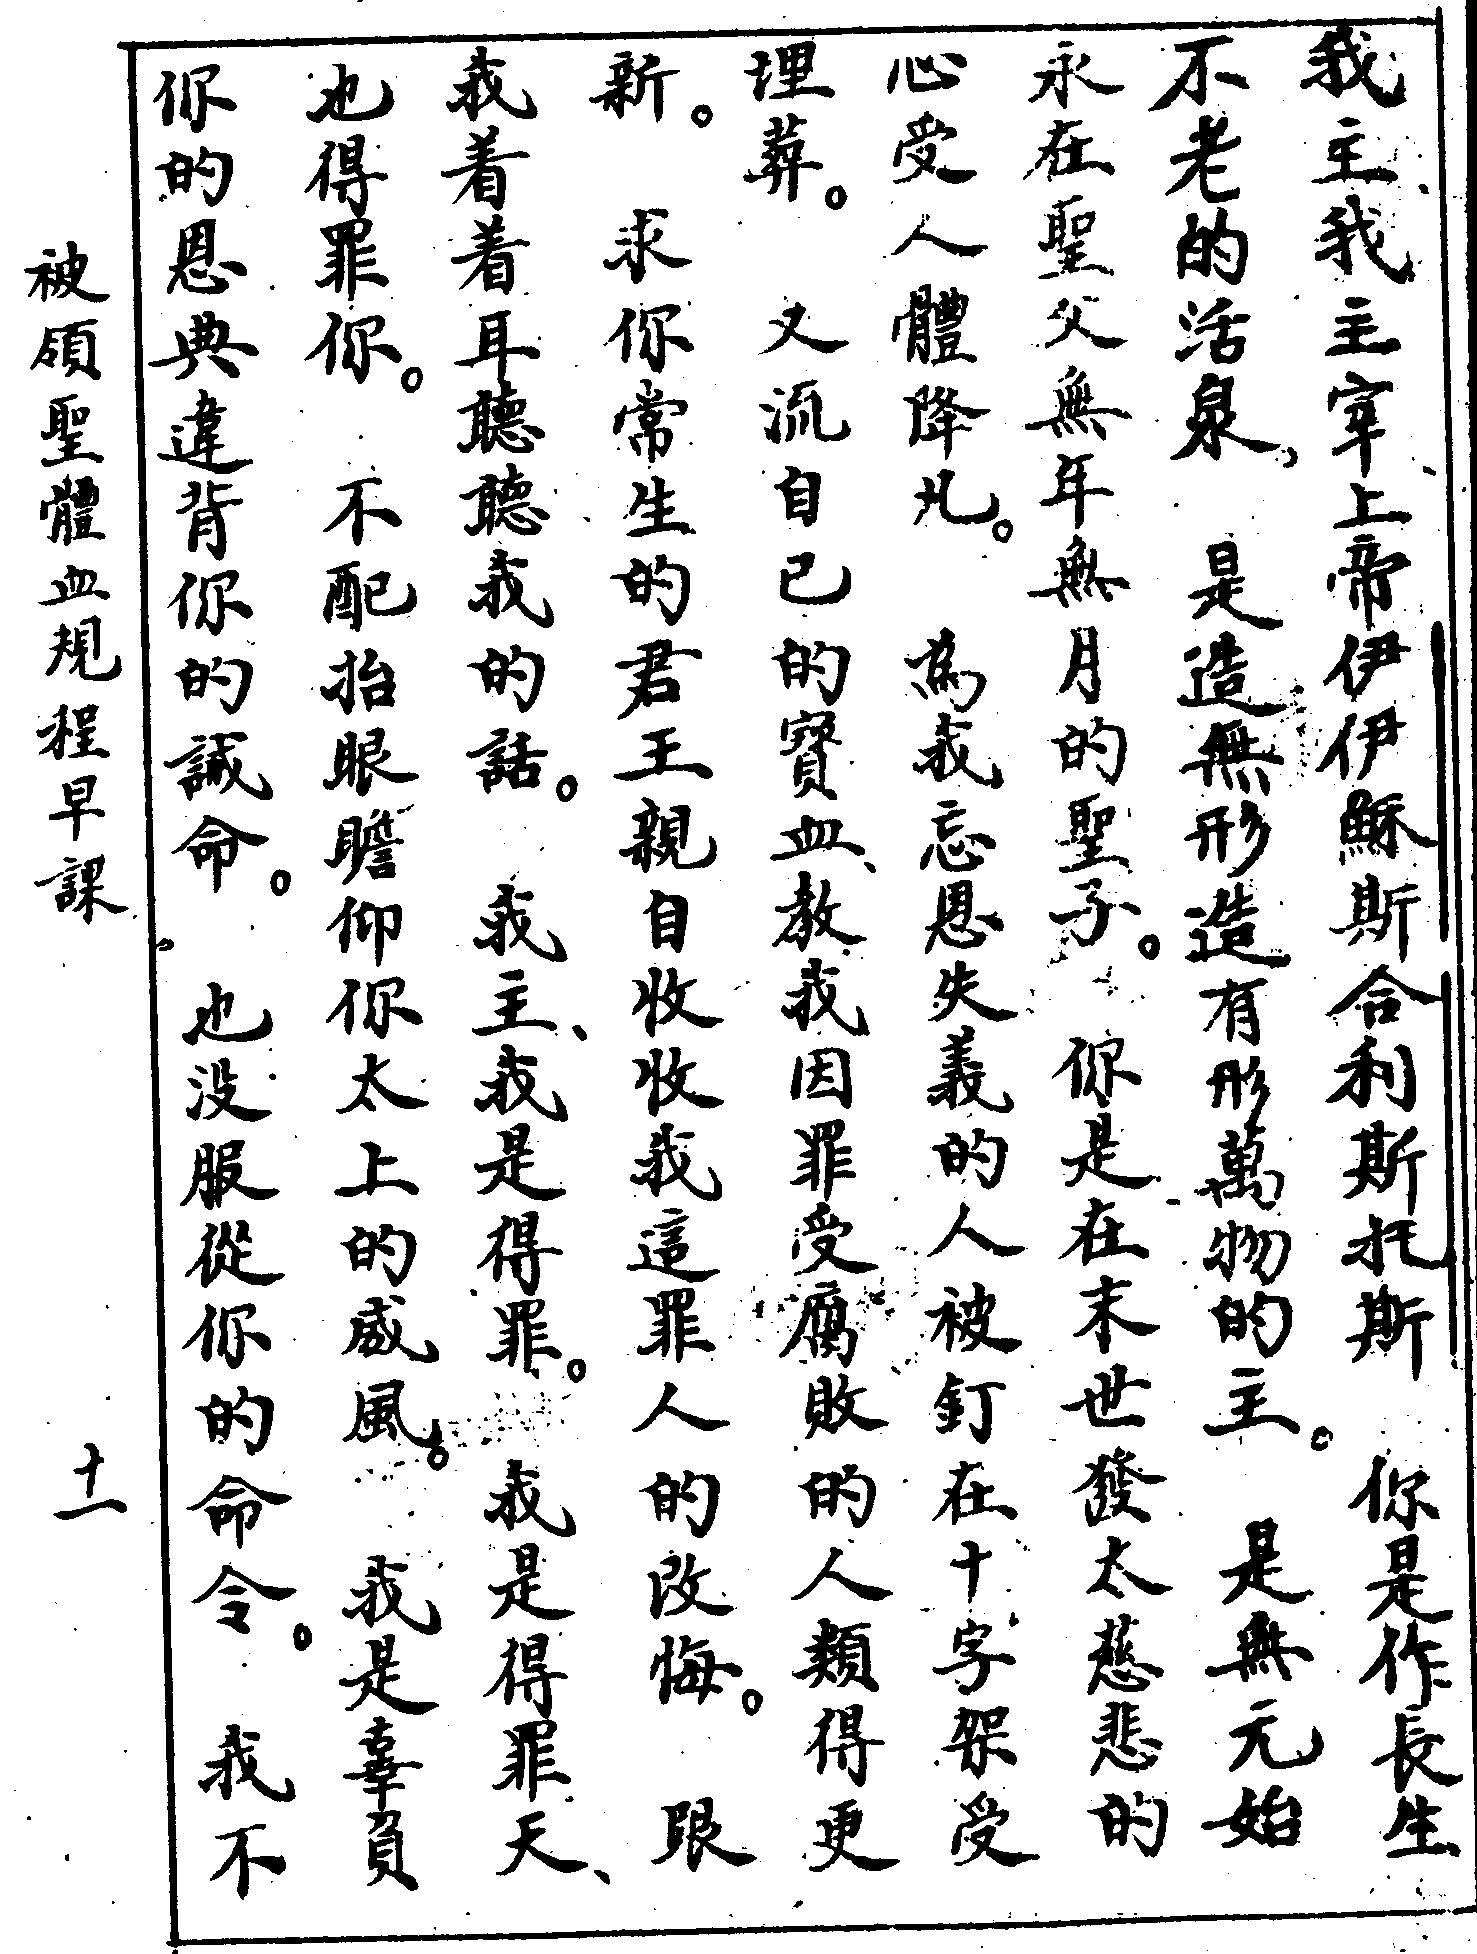 我主、我主宰上帝伊伊穌斯合利斯托斯　你是作長生
不老的活泉、是造無形造有形萬物的主。是無元始
永在聖父無年無月的聖子。你是在末世發太慈悲的
心受人體降凡。為我忘恩失義的人被釘在十字架受
埋葬。又流自己的寳血、教我因罪受腐敗的人類得更
新。求你常生的君王親自收收我這罪人的改悔。跟
我着着耳聽聽我的話。我主、我是得罪。我是得罪天、
也得罪你。不配抬眼瞻仰你太上的威風。我是辜負
你的恩典違背你的誡命。也没服從你的命令。我不
被領聖體血規程早課
十一